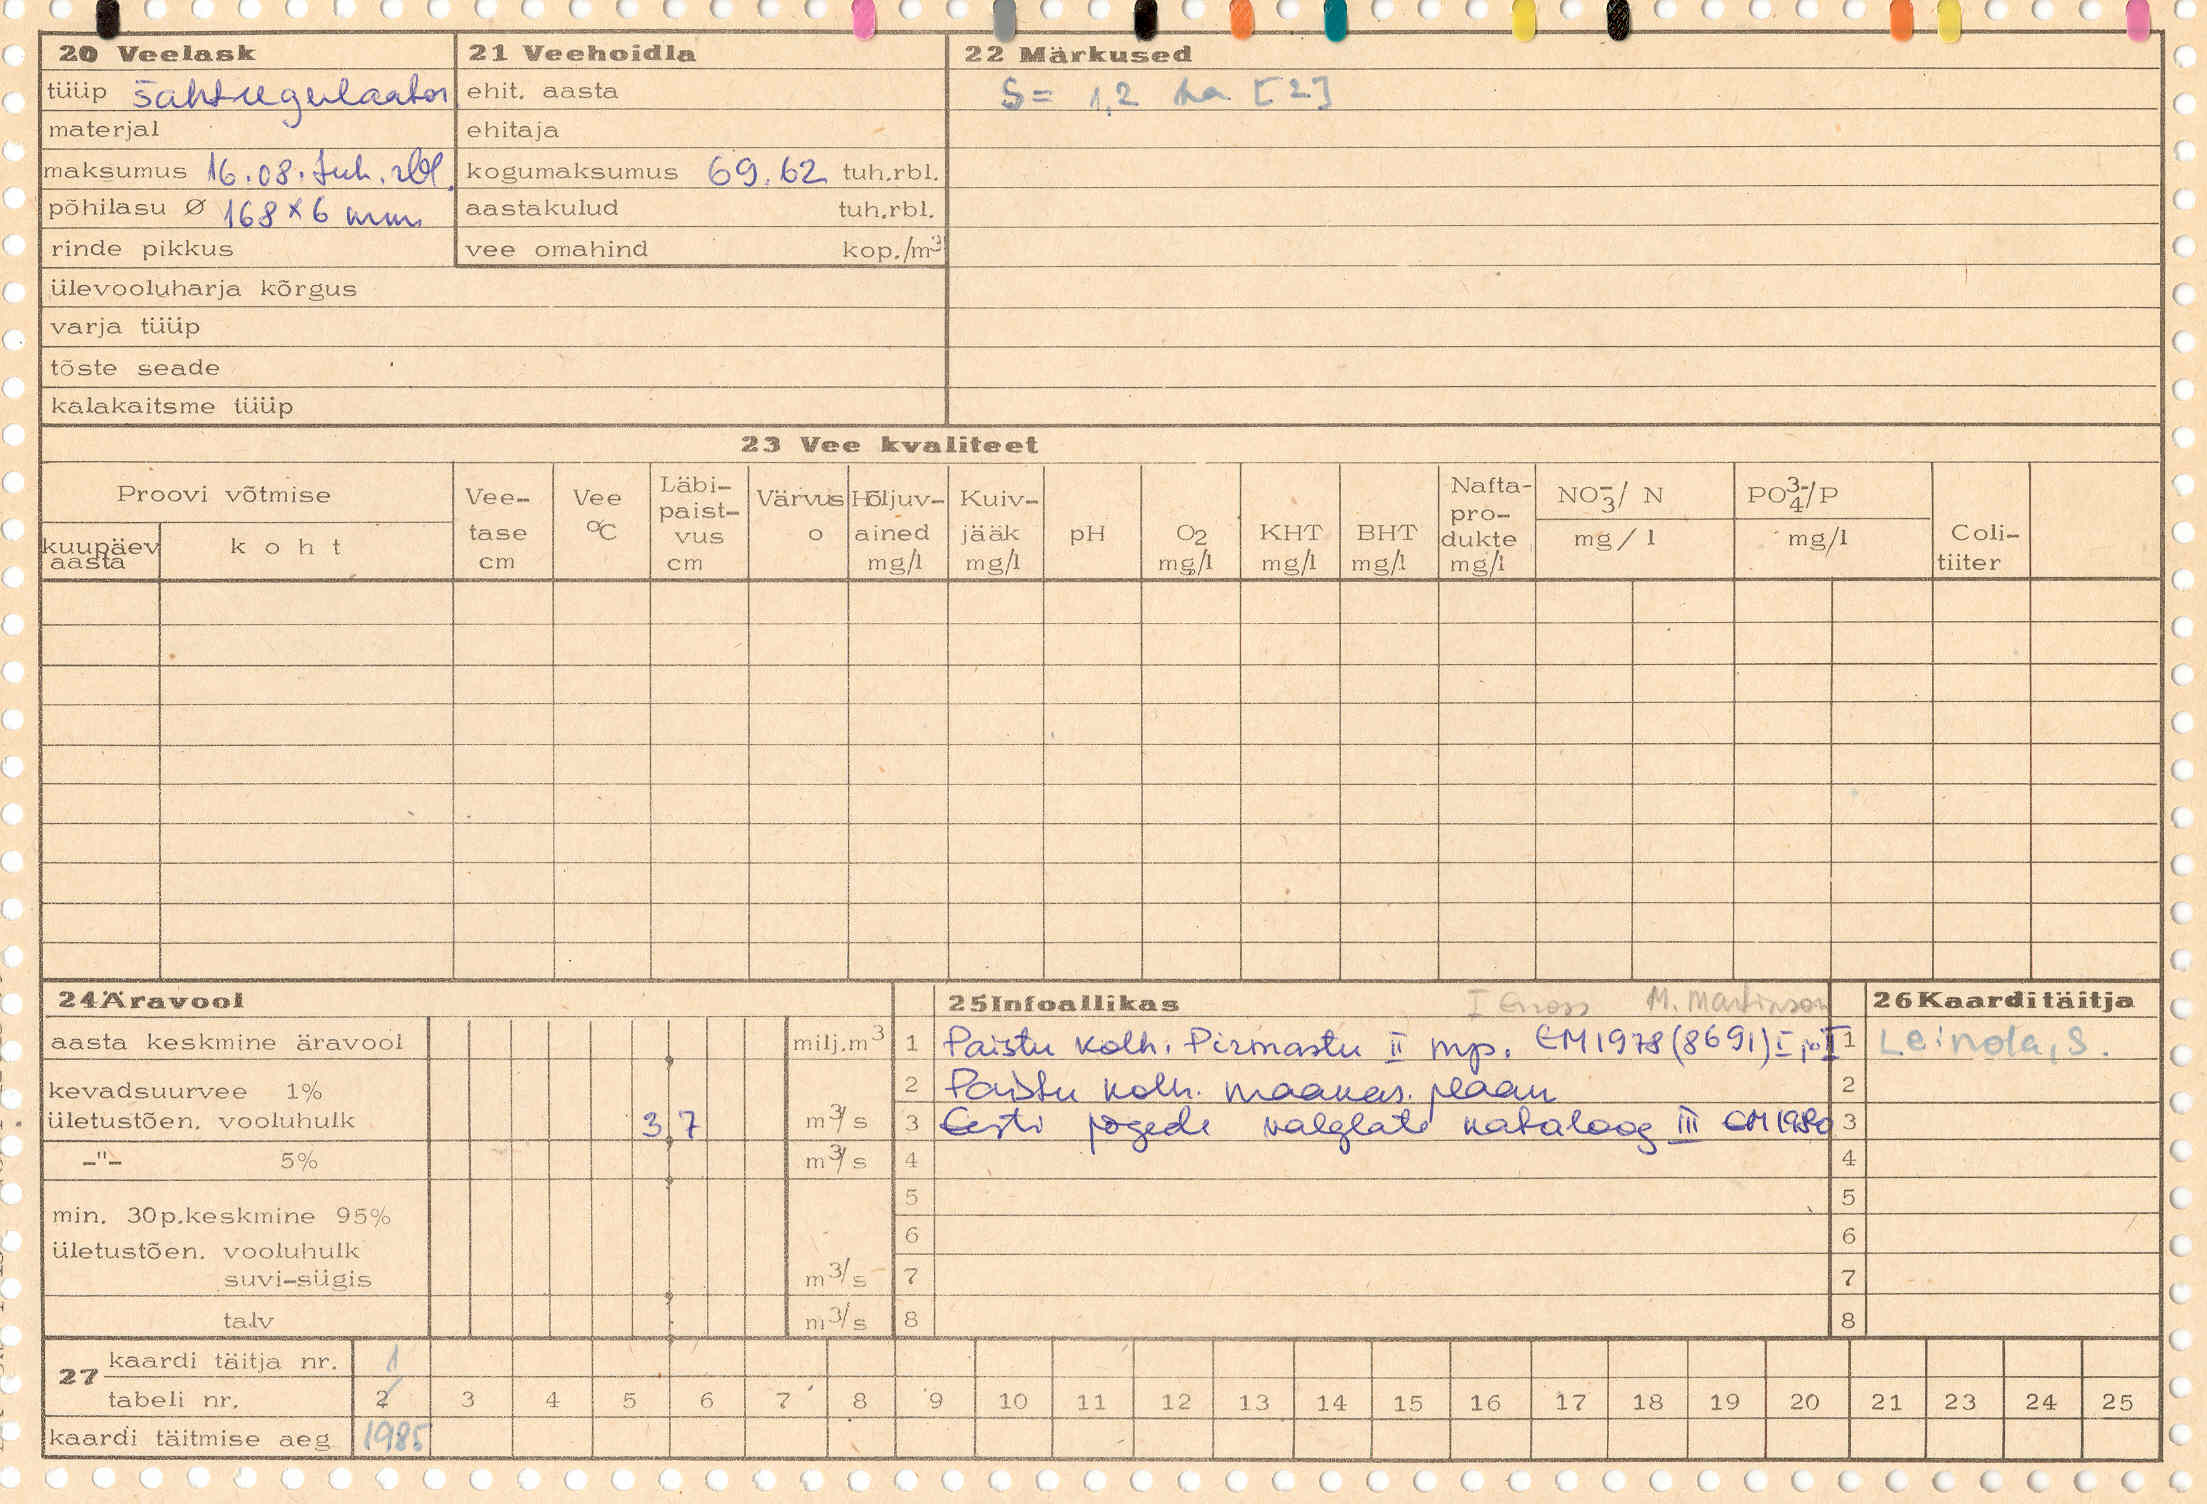 20 Veelask
tüüp šahtregulaator
materjal
maksumus 16.08. tuh. rbl.
põhilasu Ø 168×6 mm
rinde pikkus
ülevooluharja kõrgus
varja tüüp
tõste seade
kalakaitsme tüüp
21 Veehoidla
ehit. aasta
ehitaja
kogumaksumus 69.62 tuh.rbl.
aastakulud tuh.rbl.
vee omahind kop./m³
22 Märkused
S= 1,2 ha [2]
23 Vee kvaliteet
Proovi võtmise
kuupäev aasta
koht
Vee-tase cm
Vee °C
Läbi-paist-vus cm
Värvus o
Hõljuv-ained mg/l
Kuiv-jääk mg/l
pH
O2 mg/l
KHT mg/l
BHT mg/l
Nafta-pro-dukte mg/l
NO3⁻/ N mg/l
PO4³⁻/P mg/l
Coli-tiiter
24 Äravool
aasta keskmine äravool milj.m³
kevadsuurvee 1%
ületustõen. vooluhulk 3,7 m³/s
-"- 5% m³/s
min. 30p.keskmine 95%
ületustõen. vooluhulk
suvi-sügis m³/s
talv m³/s
25 Infoallikas I M. Martinson
1 Paistu kolh. Pirmastu II mp. EM 1978 (8691) I
2 Paistu kolh. maakas. plaan
3 Eesti jõgede valglate kataloog III EM 1980
4
5
6
7
8
26 Kaarditäitja
1 Leinola, S.
2
3
4
5
6
7
8
27 kaardi täitja nr. 1
tabeli nr. 2 3 4 5 6 7 8 9 10 11 12 13 14 15 16 17 18 19 20 21 23 24 25
kaardi täitmise aeg 1985